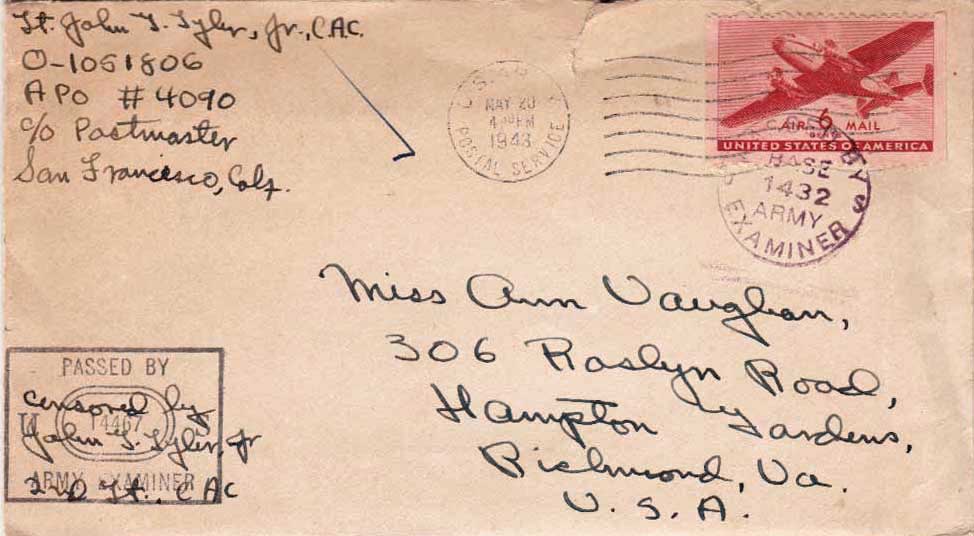 Lt. John T. Tyler, Jr., C.A.C.
O-1051806
APO #4090
c/o Postmaster
San Francisco, Calf.
MAY 20
1943
POSTAL SERVICE
6
AIR MAIL
UNITED STATES OF AMERICA
BASE
1432
ARMY
EXAMINER
Miss Ann Vaughan,
306 Roslyn Road,
Hampton Gardens,
Richmond, Va.
U. S. A.
PASSED BY
14467
ARMY EXAMINER
Censored by
John T. Tyler, Jr
2nd Lt., CAC